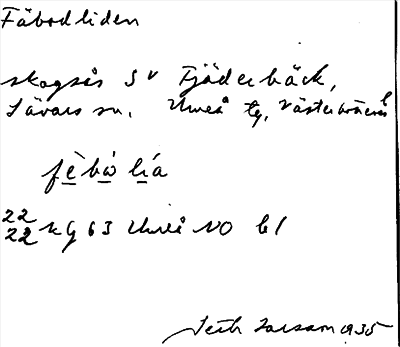 Fäbodliden
skogsås SV Fjäderbäck,
Sävars sn. Umeå tg, Västerbottens l
fèbo lía
22/22 kg 63 Umeå NO bl
Seth Larsson 1935